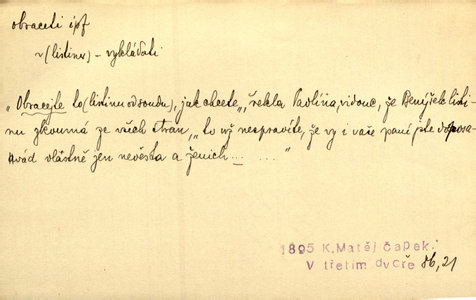 obraceti ipf
v (listiner) – vykládati
„Obracejte to (listinu odsoudu), jak chcete", řekla Pavlína, vidouc, že Benýšek listi-
nu zkoumá ze všech stran „to už nespravíte, že vy i vaše paní jste doposa-
vád vlastně jen nevěsta a ženich ... ..."
1895 K. Matěj Čapek:
V třetím dvoře 86,21